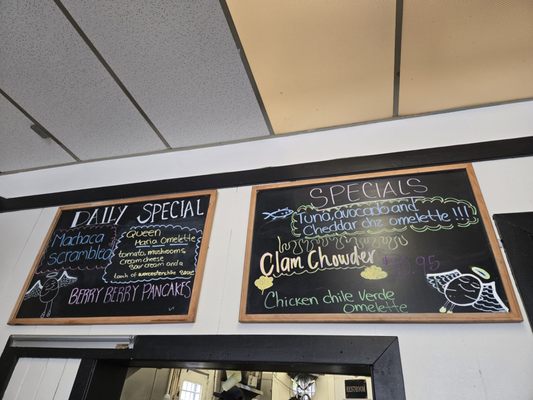 DAILY SPECIAL
Machaca
Scrambled
Queen
Maria Omelette
tomato, mushrooms
cream cheese
sour cream and a
touch of worcestershire sauce
BERRY BERRY PANCAKES
SPECIALS
Tuna, avocado and
Cheddar che omelette !!!
Clam Chowder
$8.95
Chicken chile Verde
Omelette